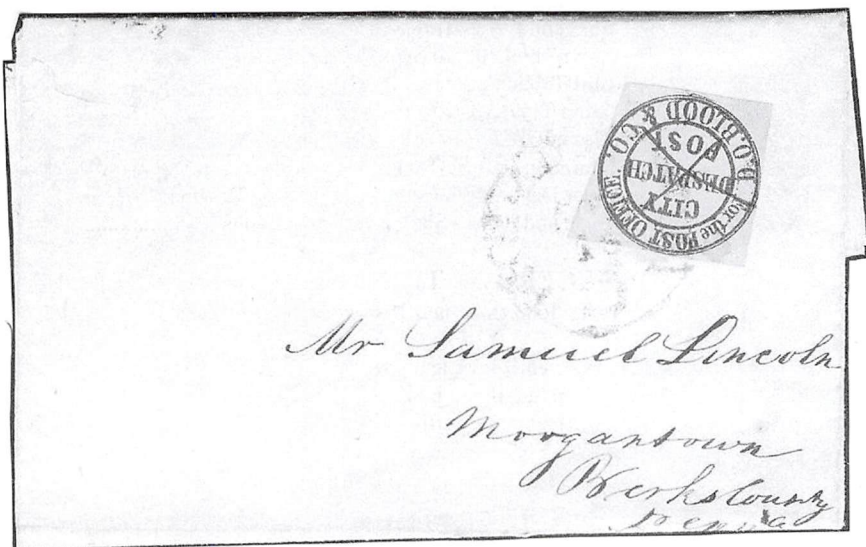 D.O. BLOOD & CO.
For the POST OFFICE
CITY
DESPATCH
POST
Mr Samuel Lincoln
Morgantown
Berks County
Penna